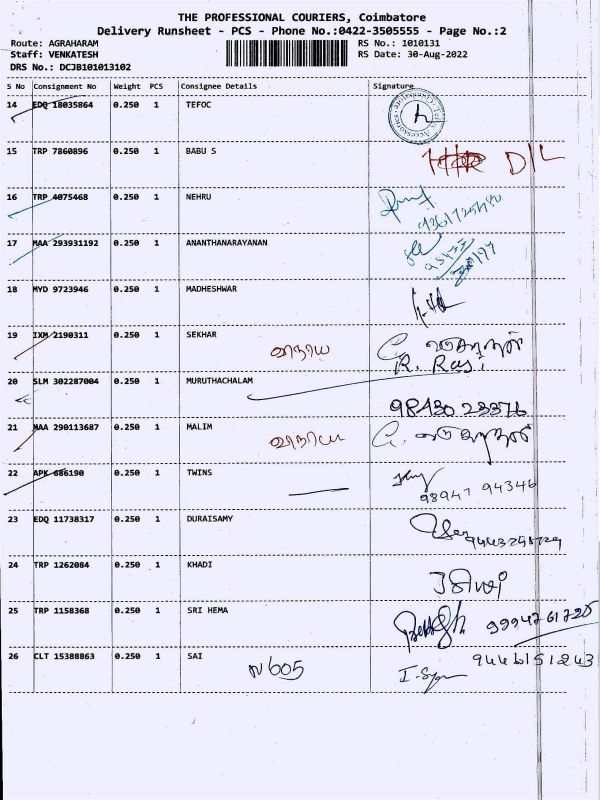 THE PROFESSIONAL COURIERS, Coimbatore
Delivery Runsheet - PCS - Phone No.:0422-3505555 - Page No.:2
Route: AGRAHARAM RS No.: 1010131
Staff: VENKATESH RS Date: 30-Aug-2022
DRS No.: DCJB101013102
S No Consignment No Weight PCS Consignee Details Signature
14 EDQ 18035864 0.250 1 TEFOC
15 TRP 7860896 0.250 1 BABU S D/L
16 TRP 4075468 0.250 1 NEHRU
17 MAA 293931192 0.250 1 ANANTHANARAYANAN
18 MYD 9723946 0.250 1 MADHESHWAR
19 IXM 2190311 0.250 1 SEKHAR
R. Raj
20 SLM 302287004 0.250 1 MURUTHACHALAM
98430 23376
21 MAA 290113687 0.250 1 MALIM
22 APK 686190 0.250 1 TWINS
98947 94346
23 EDQ 11738317 0.250 1 DURAISAMY
24 TRP 1262084 0.250 1 KHADI
25 TRP 1158368 0.250 1 SRI HEMA
9994761725
26 CLT 15388863 0.250 1 SAI N605 9446151243